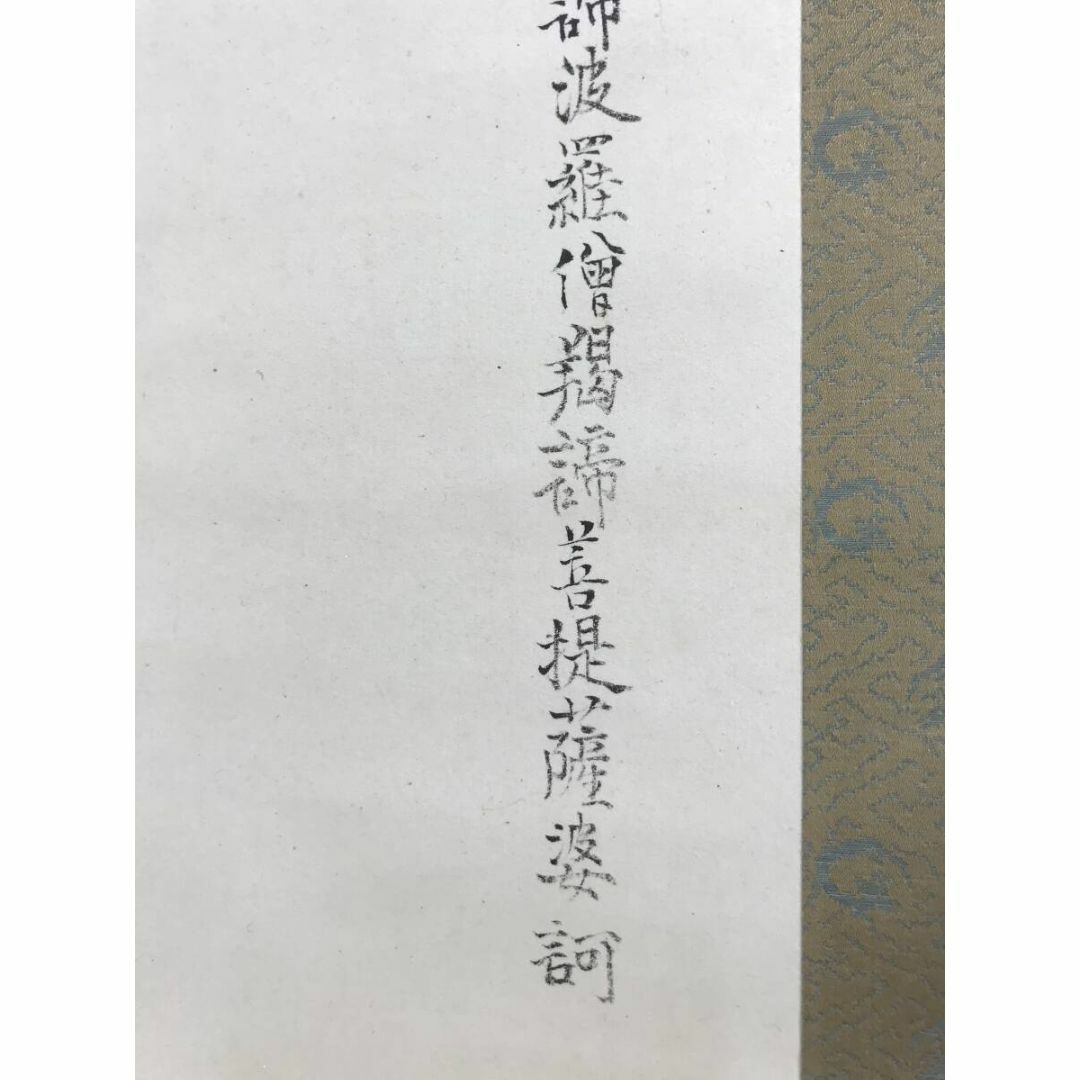 諦波羅僧羯諦菩提薩婆訶